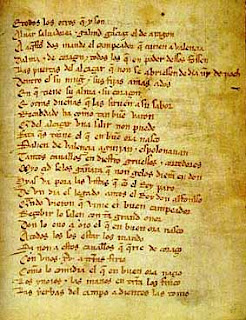 E todos los otros que y son
Aluar saluadorez & galind garciaz el de aragon
A aquestos dos mando el campeador que curien a valencia
Dalma & de coraçon & todos los que en poder dessos fossen
Las puertas del alcaçar que non se abriessen de dia nin de noch
Dentro es su mugier & sus fijas amas ados
En que tiene su alma & su coraçon
E otras dueñas que las siruen a su sabor
Recabdado ha como tan buen varon
Que del alcaçar vna salir non puede
Fata ques torne el que en buen ora nasco
Salien de valencia aguijan & espolonauan
Tantos cauallos en diestro gruessos & corredores
Myo çid selos gañara que non gelos dieran en don
Hyas va pora las vistas que con el Rey paro
De vn dia es legado antes el Rey don alfonsso
Quando vieron que vinie el buen campeador
Reçebir lo salen con tan grand onor
Don lo ouo a oio el que en buen ora nasco
A todos los sos estar los mando
Si non a estos caualleros que querie de coraçon
Con vnos xv a tierras firio
Como lo comidia el que en buen ora naçio
Los ynoios & las manos en tierra los finco
Las yerbas del campo a dientes las tomo